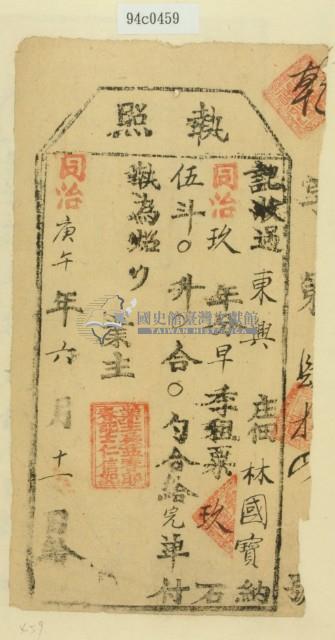 94c0459
執照
記收過東興庄佃林國寶納
同治玖年分早季租粟玖石
伍斗〇升〇合〇勺合給完单付
執為炤
業主
同治庚午年六月十一日給
國史館臺灣文獻館
TAIWAN HISTORICA
乾
字第
號
459